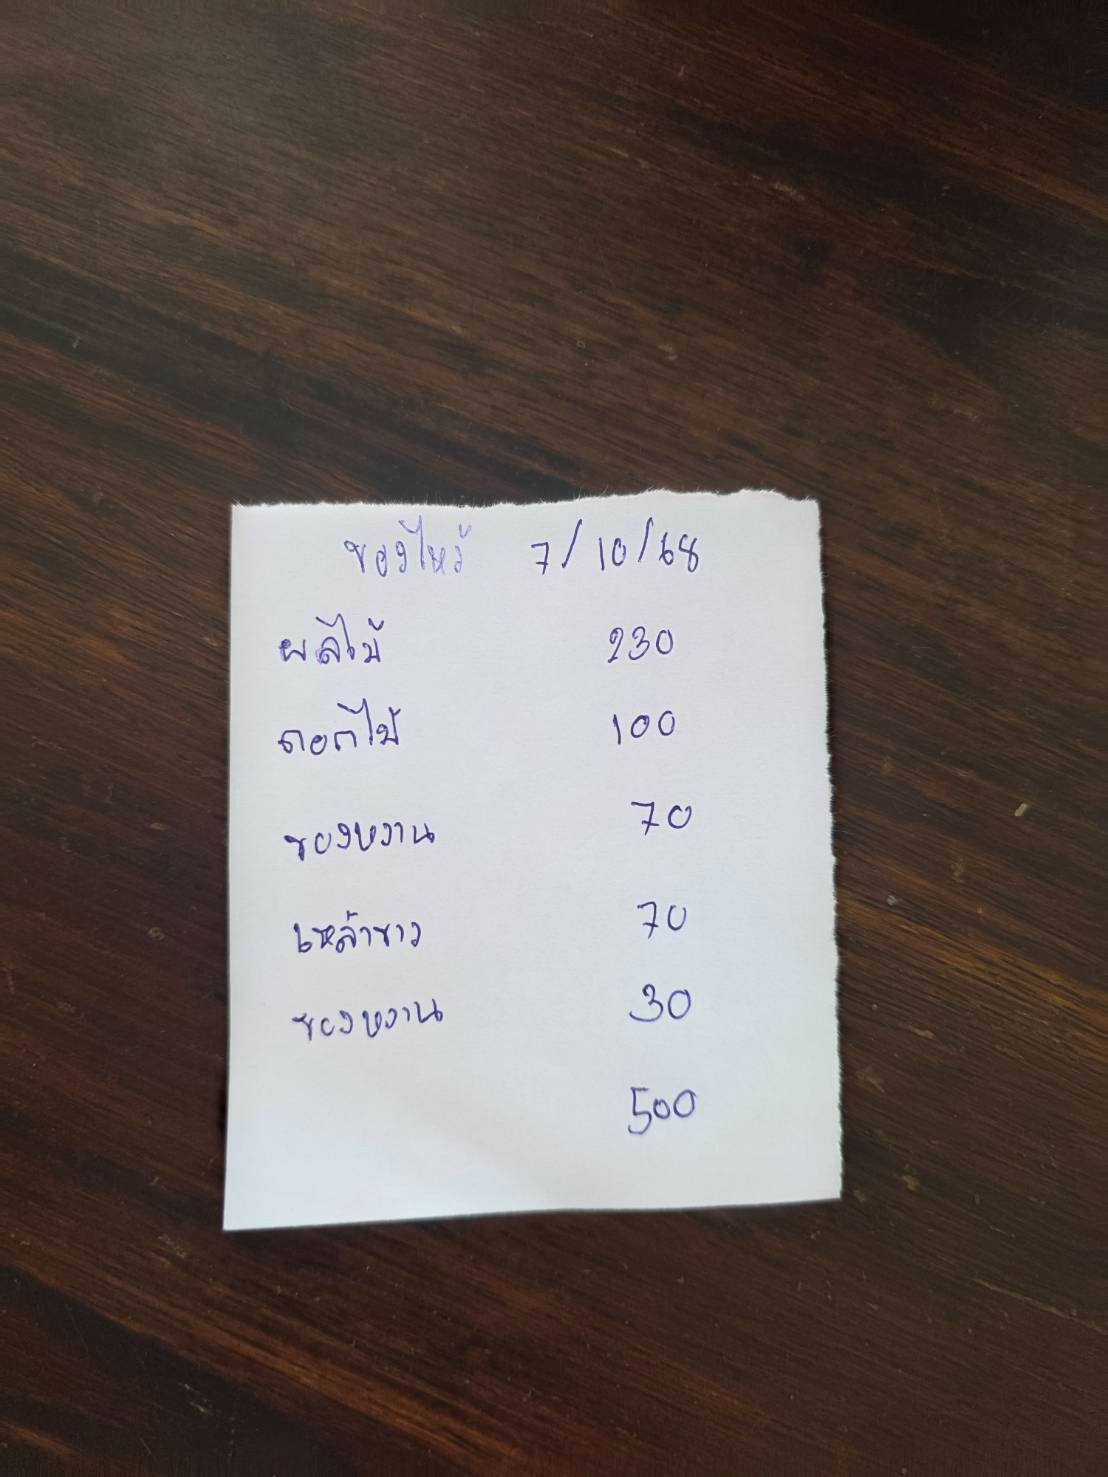 ของไหว้ 7/10/68
ผลไม้ 230
ดอกไม้ 100
ของหวาน 70
เหล้าขาว 70
ของหวาน 30
500